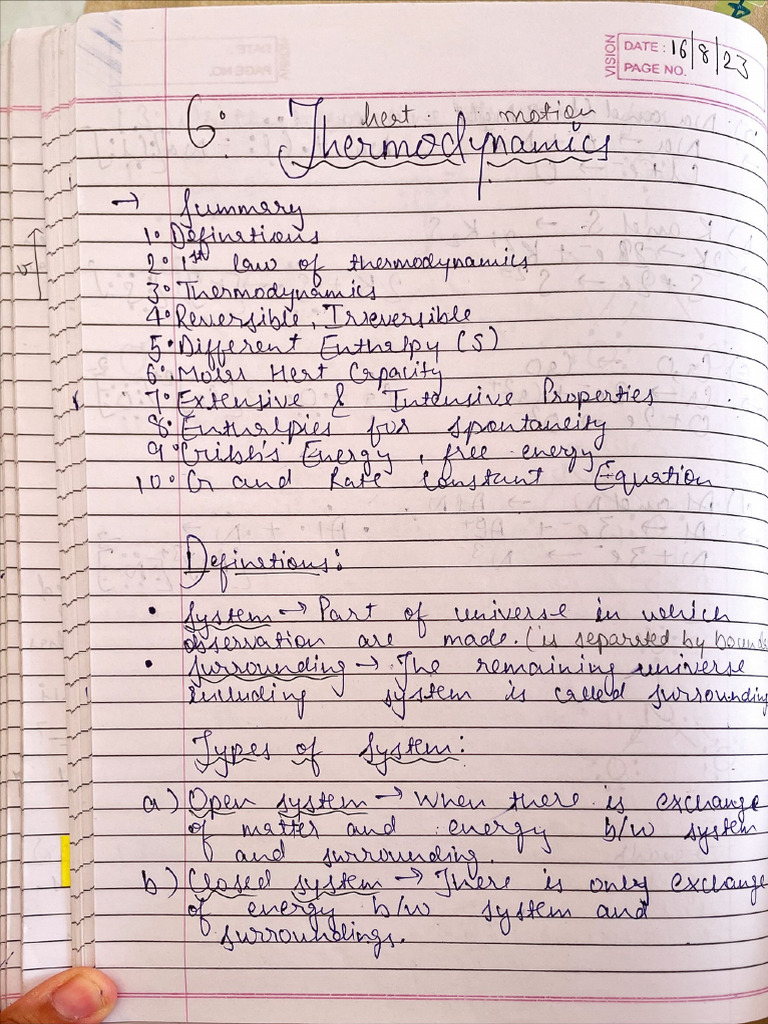 VISION
DATE: 16/8/23
PAGE NO.
heat motion
6: Thermodynamics
→ Summary
1. Definations
2. 1st law of thermodynamics
3. Thermodynamics
4. Reversible, Irreversible
5. Different Enthalpy (S)
6. Molar Heat Capacity
7. Extensive & Intensive Properties
8. Enthalpies for spontaneity
9. Gribb's Energy, free energy
10. G and Rate Constant Equation
Definations:
• System → Part of universe in which
observation are made. (is separated by bounda
• Surrounding → The remaining universe
including system is called surrounding
Types of System:
a) Open system → When there is exchange
of matter and energy b/w system
and surrounding.
b) Closed system → There is only exchange
of energy b/w system and
surroundings.